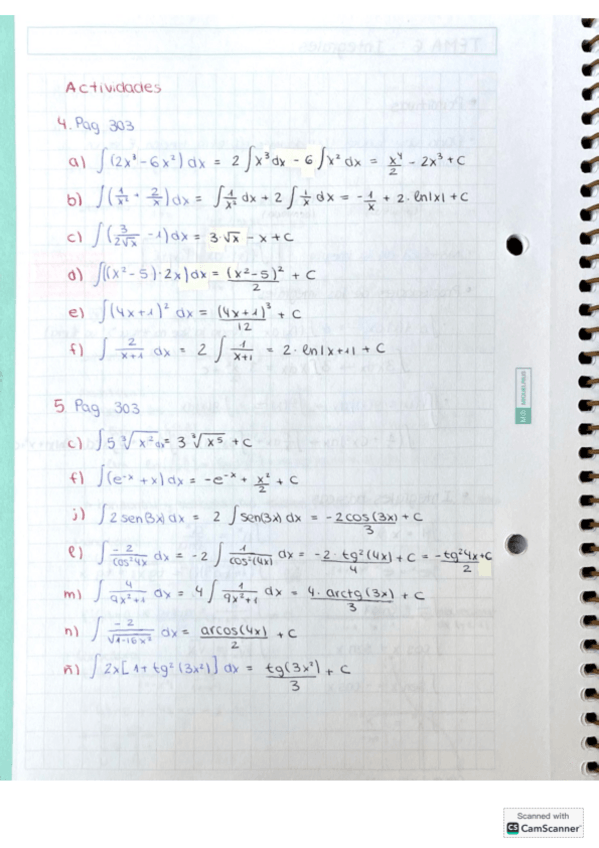 Actividades
4. Pag 303
a) ∫(2x³-6x²)dx = 2∫x³dx - 6∫x²dx = x⁴/2 - 2x³+C
b) ∫(1/x² + 2/x)dx = ∫1/x² dx + 2∫1/x dx = -1/x + 2·ln|x| + C
c) ∫(3/2√x - 1)dx = 3·√x - x + C
d) ∫((x²-5)·2x)dx = (x²-5)²/2 + C
e) ∫(4x+1)² dx = (4x+1)³/12 + C
f) ∫ 2/x+1 dx = 2∫ 1/x+1 = 2·ln|x+1| + C
5. Pag 303
c) ∫5 ³√x² dx = 3 ³√x⁵ + C
f) ∫(e⁻ˣ + x)dx = -e⁻ˣ + x²/2 + C
j) ∫2sen(3x)dx = 2∫sen(3x)dx = -2cos(3x)/3 + C
l) ∫ -2/cos²4x dx = -2∫ 1/cos²(4x) dx = -2·tg²(4x)/4 + C = -tg²4x+C/2
m) ∫ 4/9x²+1 dx = 4∫ 1/9x²+1 dx = 4·arctg(3x)/3 + C
n) ∫ -2/√1-16x² dx = arcos(4x)/2 + C
ñ) ∫2x[1+tg²(3x²)]dx = tg(3x²)/3 + C
Scanned with
CS CamScanner